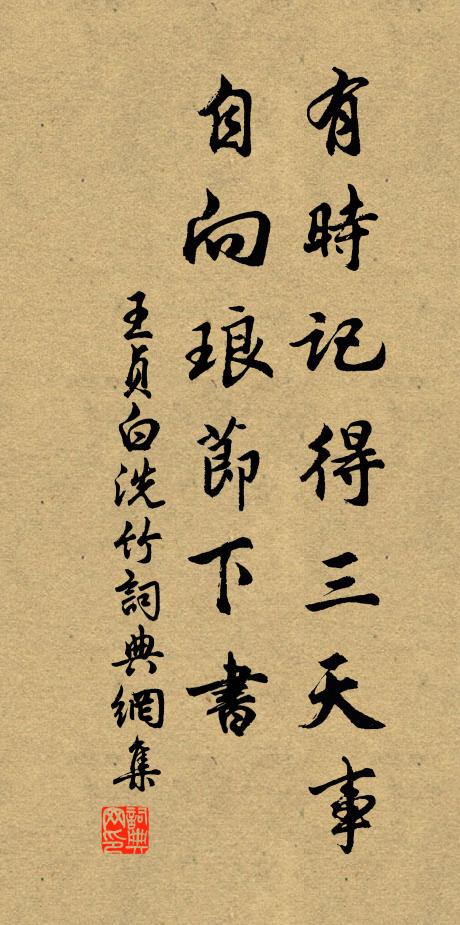 有時記得三天事
自向琅節下書
王貞白洗竹詞典網集
詞典网印